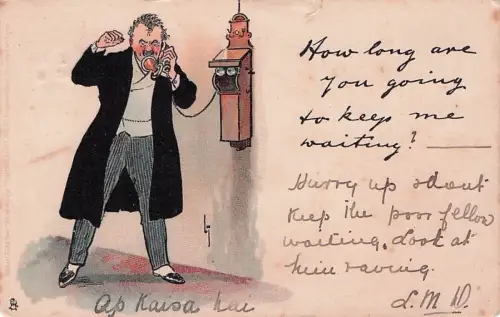 How long are
you going
to keep me
waiting?
Hurry up dont
keep the poor fellow
waiting. Look at
him raving.
L. M. D.
Ap Kaisa hai